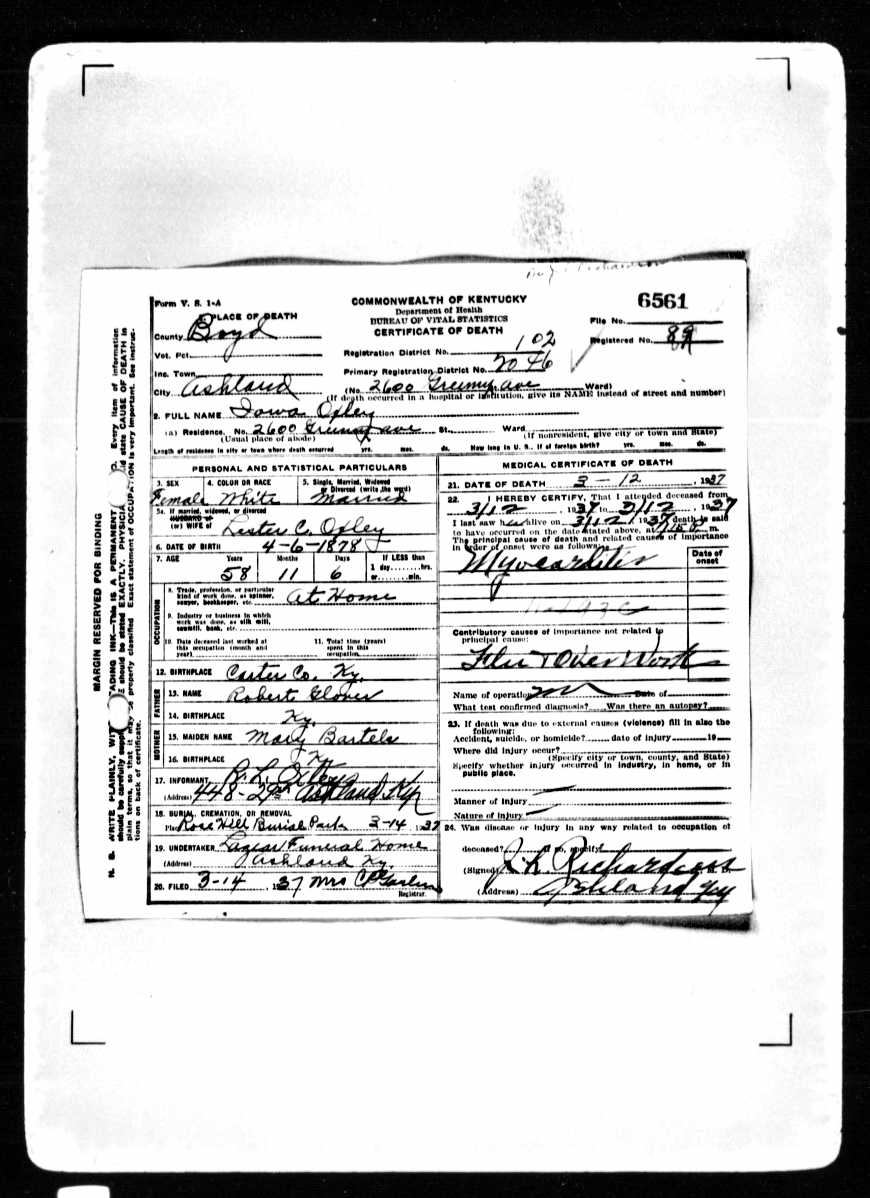 Form V. S. 1-A
COMMONWEALTH OF KENTUCKY
Department of Health
BUREAU OF VITAL STATISTICS
CERTIFICATE OF DEATH
6561
File No.
Registered No. 89
PLACE OF DEATH
County Boyd
Vot. Pct.
Inc. Town
City Ashland
Registration District No. 102
Primary Registration District No. 2046
(No. 2600 Ave Ward)
(If death occurred in a hospital or institution, give its NAME instead of street and number)
2. FULL NAME Iowa Oxley
(a) Residence. No. 2600 ave St., Ward
(Usual place of abode) (If nonresident, give city or town and State)
Length of residence in city or town where death occurred yrs. mos. ds. How long in U. S., if of foreign birth? yrs. mos. ds.
PERSONAL AND STATISTICAL PARTICULARS
3. SEX 4. COLOR OR RACE 5. Single, Married, Widowed
or Divorced (write the word)
Female White Married
5a. If married, widowed, or divorced
HUSBAND of
(or) WIFE of Lester C. Oxley
6. DATE OF BIRTH 4-6-1878
7. AGE Years Months Days If LESS than
1 day........hrs.
or........min.
58 11 6
OCCUPATION
8. Trade, profession, or particular
kind of work done, as spinner,
sawyer, bookkeeper, etc. At Home
9. Industry or business in which
work was done, as silk mill,
sawmill, bank, etc.
10. Date deceased last worked at
this occupation (month and
year)
11. Total time (years)
spent in this
occupation
12. BIRTHPLACE Carter Co. Ky.
FATHER
13. NAME Robert Glover
14. BIRTHPLACE Ky.
MOTHER
15. MAIDEN NAME Mary Bartels
16. BIRTHPLACE Ky
17. INFORMANT R. L. Oxley
(Address) 448-29th Ashland Ky
18. BURIAL, CREMATION, OR REMOVAL
Place Rose Hill Burial Park 3-14 1937
19. UNDERTAKER Lazear Funeral Home
(Address) Ashland Ky.
20. FILED 3-14 1937 Mrs C
Registrar.
MEDICAL CERTIFICATE OF DEATH
21. DATE OF DEATH 3-12, 1937
22. I HEREBY CERTIFY, That I attended deceased from
3/12, 1937 to 3/12, 1937
I last saw her alive on 3/12, 1937 death is said
to have occurred on the date stated above, at m.
The principal cause of death and related causes of importance
in order of onset were as follows:
Date of
onset
Myocarditis
Contributory causes of importance not related to
principal cause:
Flu & Over Work
Name of operation Date of
What test confirmed diagnosis? Was there an autopsy?
23. If death was due to external causes (violence) fill in also the
following:
Accident, suicide, or homicide? date of injury 19
Where did injury occur?
(Specify city or town, county, and State)
Specify whether injury occurred in industry, in home, or in
public place.
Manner of injury
Nature of injury
24. Was disease or injury in any way related to occupation of
deceased? If so, specify
(Signed) J. R. Richardson M. D.
(Address) Ashland Ky
MARGIN RESERVED FOR BINDING